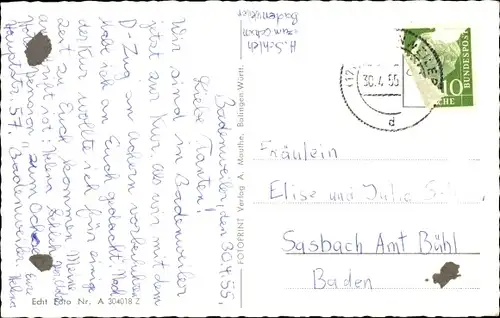 Badenweiler, den 30.4.55.
Liebe Tanten!
Wir sind in Badenweiler
jetzt zur Kur. Als wir mit dem
D-Zug an Achern vorbeifuhren
habe ich an Euch gedacht. Nach
der Kur wollte ich für einige
Zeit zu Euch kommen. Meine
ist: Helma
Pension "zum Ochsen"
Hauptstr. 57, Badenweiler
Eure
Helma
H. Schleh
zum Ochsen
Badenweiler
FOTOPRINT Verlag A. Mauthe, Balingen Württ.
Echt Foto Nr. A 304018 Z
30.4.55
d
10
DEUTSCHE BUNDESPOST
Fräulein
Elise und Julie
Sasbach Amt Bühl
Baden